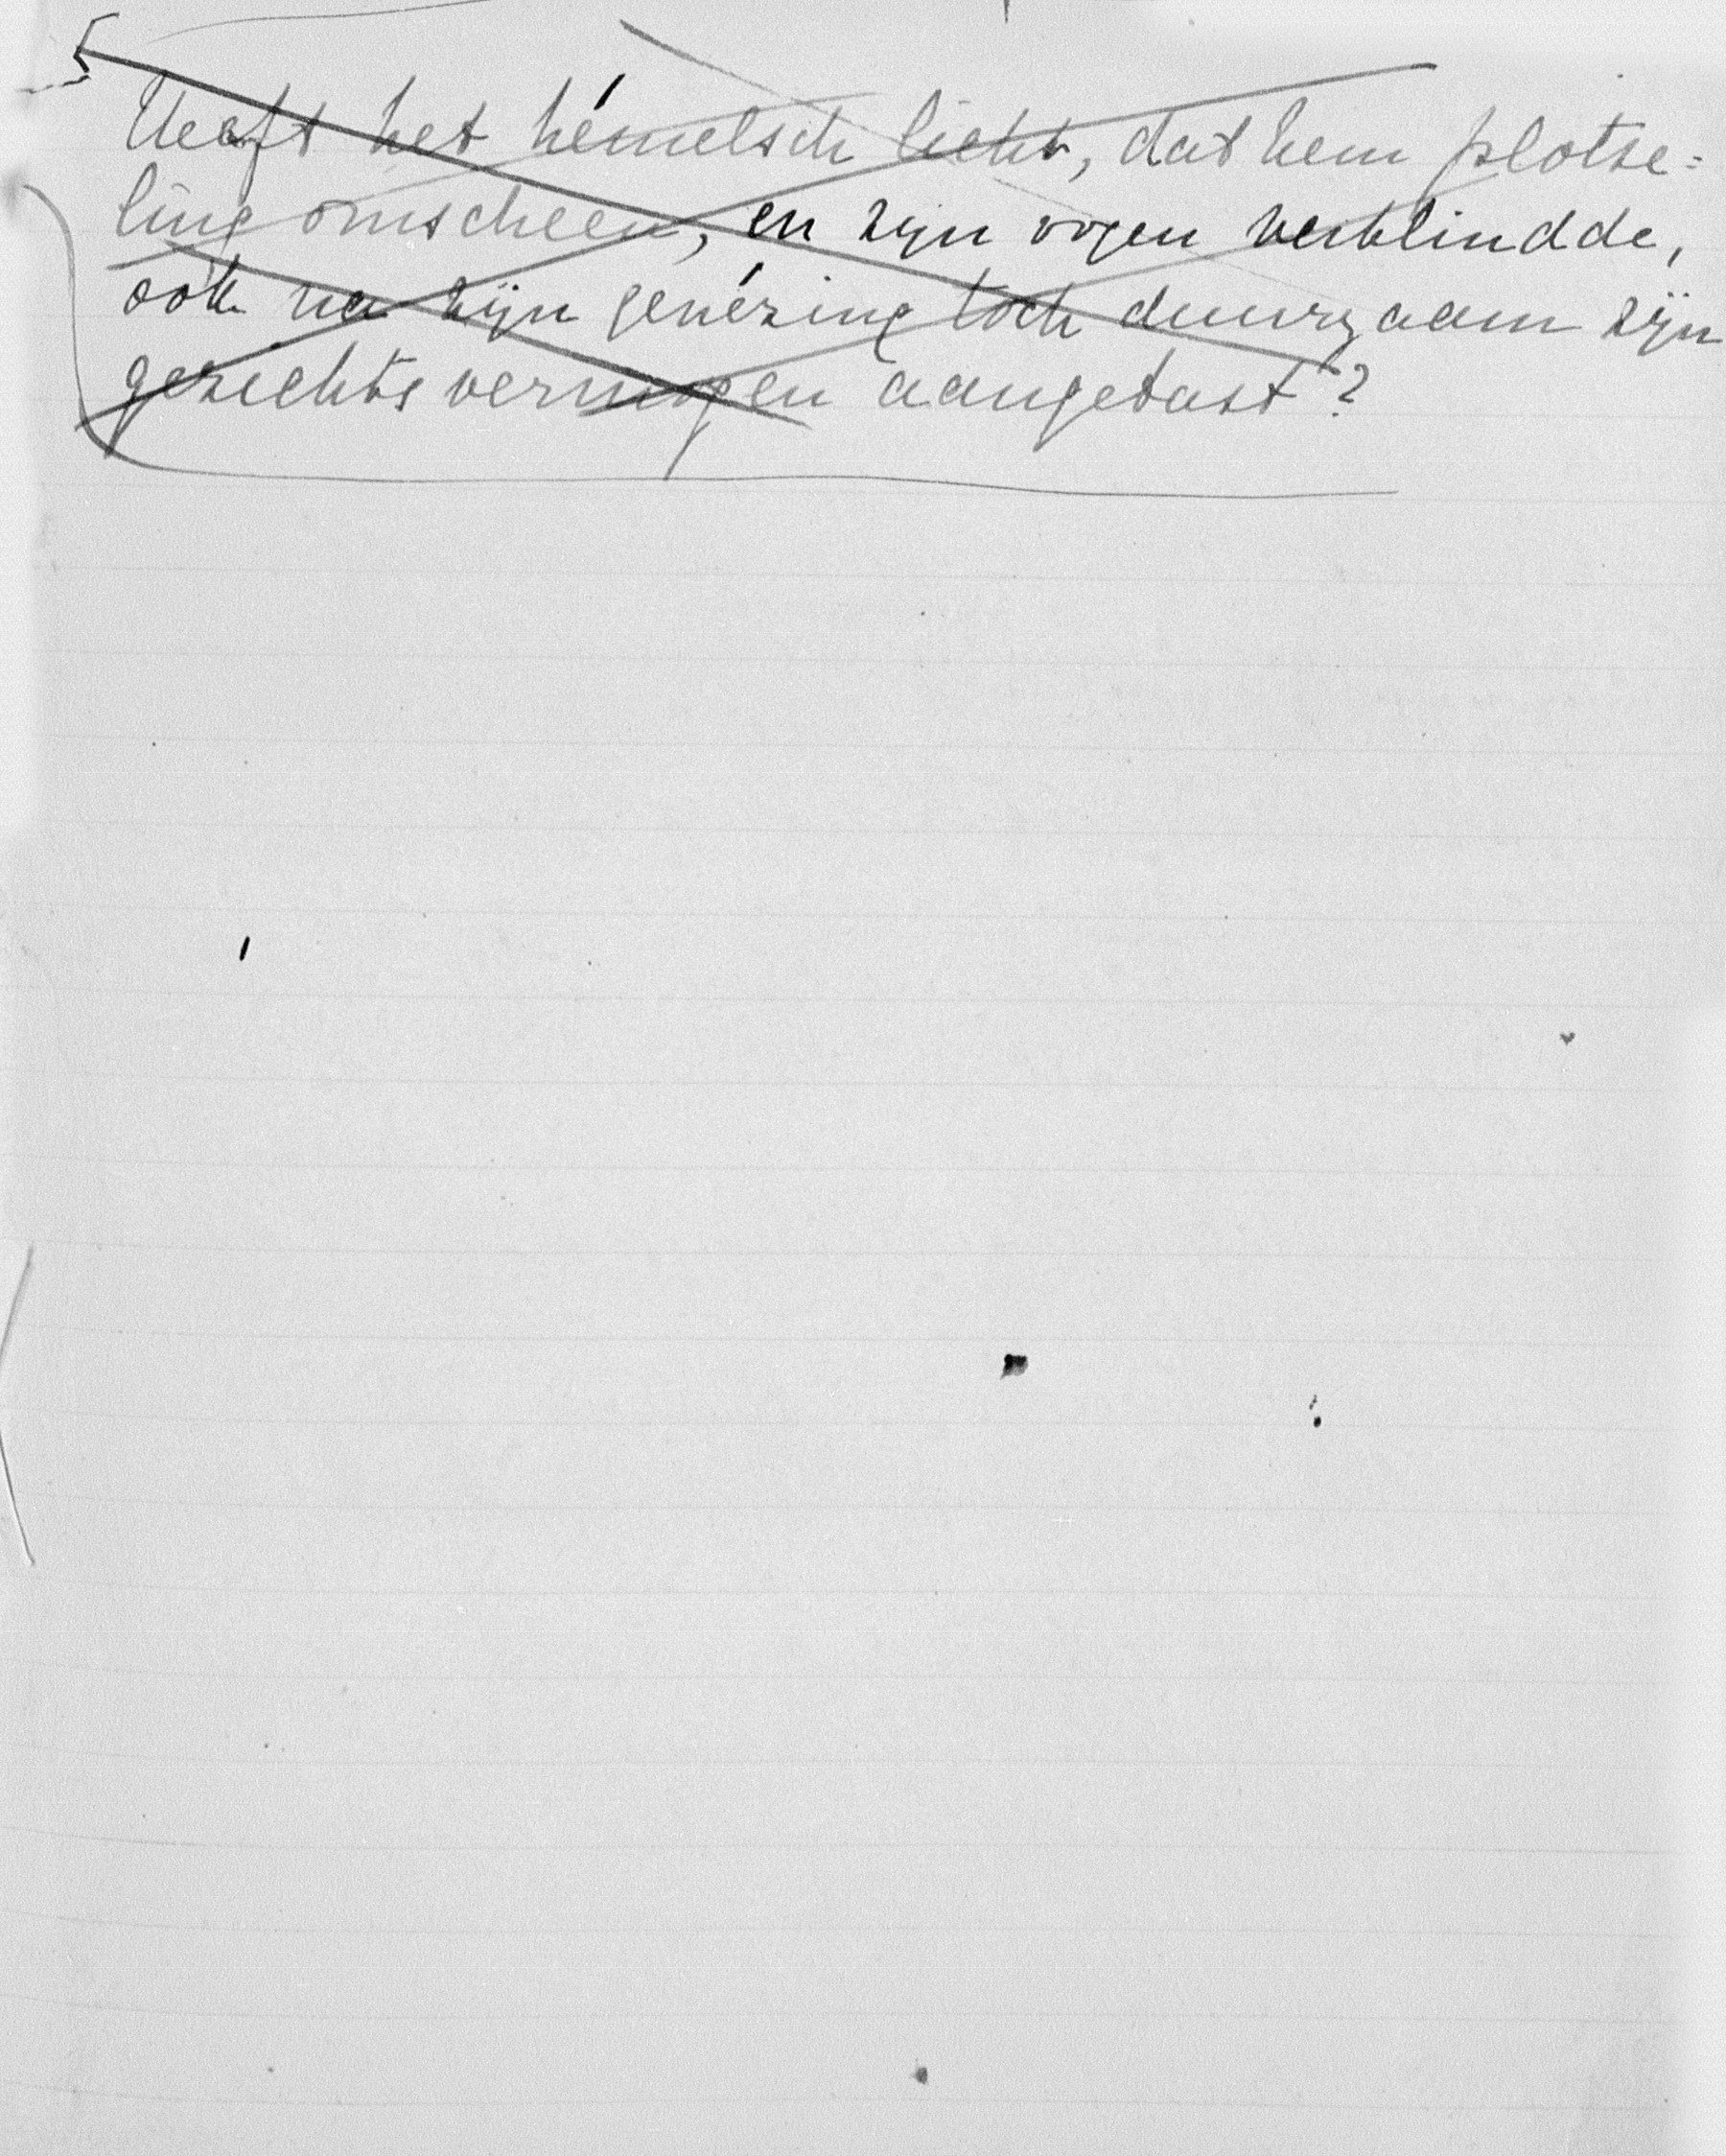 Heeft het hémelsch licht, dat hem plotse=
ling omscheen, en zijn oogen verblindde,
ook na zijn genézing toch duurzaam zijn
gezichtsvermogen aangetast?